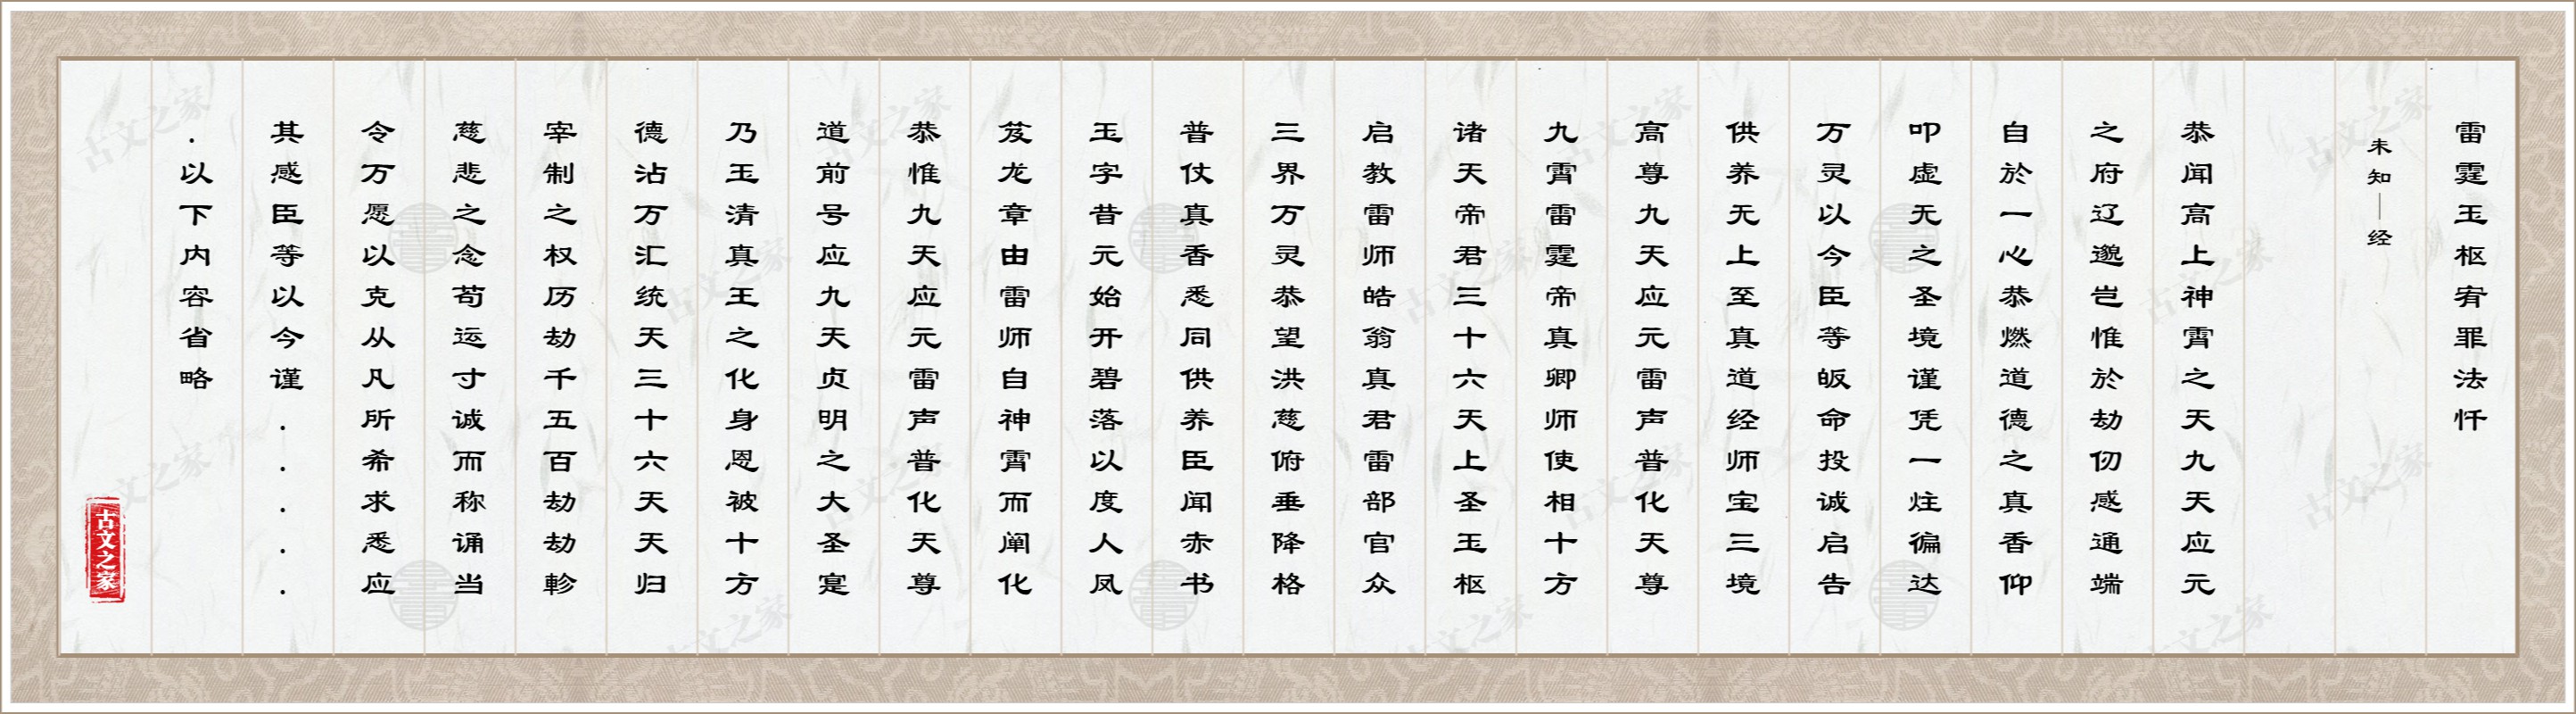 雷霆玉枢宥罪法忏
未知｜经
恭闻高上神霄之天九天应元
之府辽邈岂惟於劫仞感通端
自於一心恭燃道德之真香仰
叩虚无之圣境谨凭一炷徧达
万灵以今臣等皈命投诚启告
供养无上至真道经师宝三境
高尊九天应元雷声普化天尊
九霄雷霆帝真卿师使相十方
诸天帝君三十六天上圣玉枢
启教雷师皓翁真君雷部官众
三界万灵恭望洪慈俯垂降格
普仗真香悉同供养臣闻赤书
玉字昔元始开碧落以度人凤
笈龙章由雷师自神霄而阐化
恭惟九天应元雷声普化天尊
道前号应九天贞明之大圣寔
乃玉清真王之化身恩被十方
德沾万汇统天三十六天天归
宰制之权历劫千五百劫劫轸
慈悲之念苟运寸诚而称诵当
令万愿以克从凡所希求悉应
其感臣等以今谨.....
.以下内容省略
古文之家